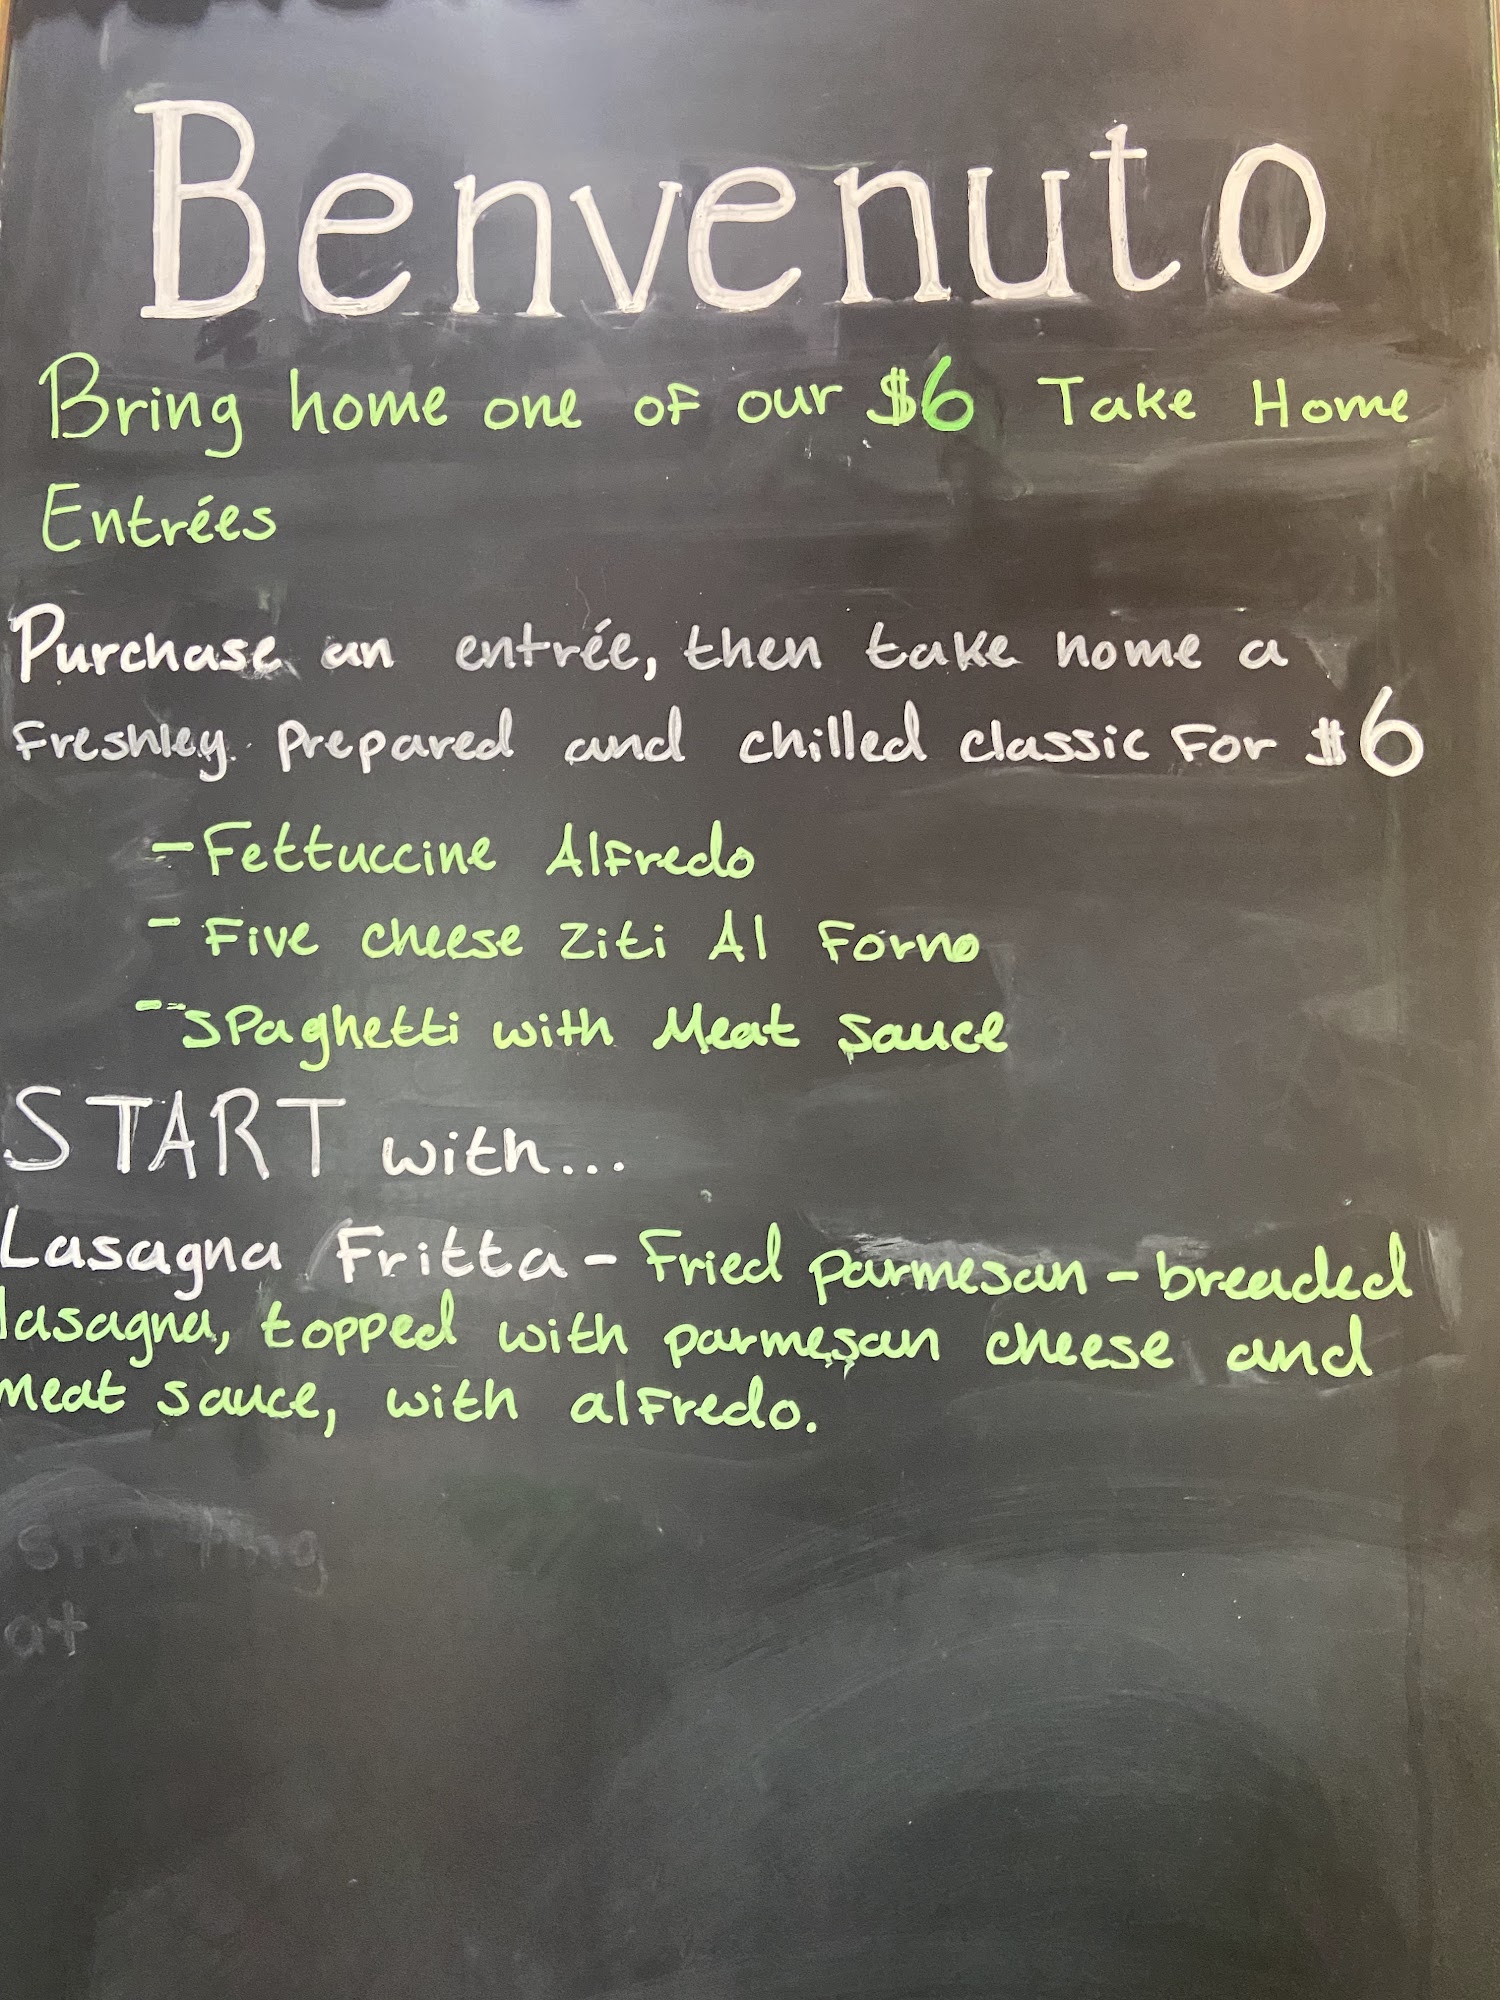 Benvenuto
Bring home one of our $6 Take Home
Entrées
Purchase an entrée, then take home a
Freshley Prepared and chilled classic For $6
- Fettuccine Alfredo
- Five cheese Ziti Al Forno
- Spaghetti with Meat Sauce
START with...
Lasagna Fritta - Fried parmesan - breaded
lasagna, topped with parmesan cheese and
meat sauce, with alfredo.
starting
at